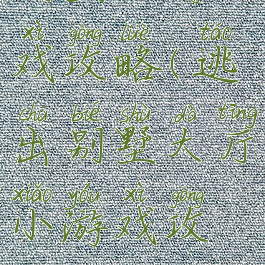 xì gōng lüè táo
戏攻略(逃
chū bié shù dà tīng
出别墅大厅
xiǎo yóu xì gōng
小游戏攻